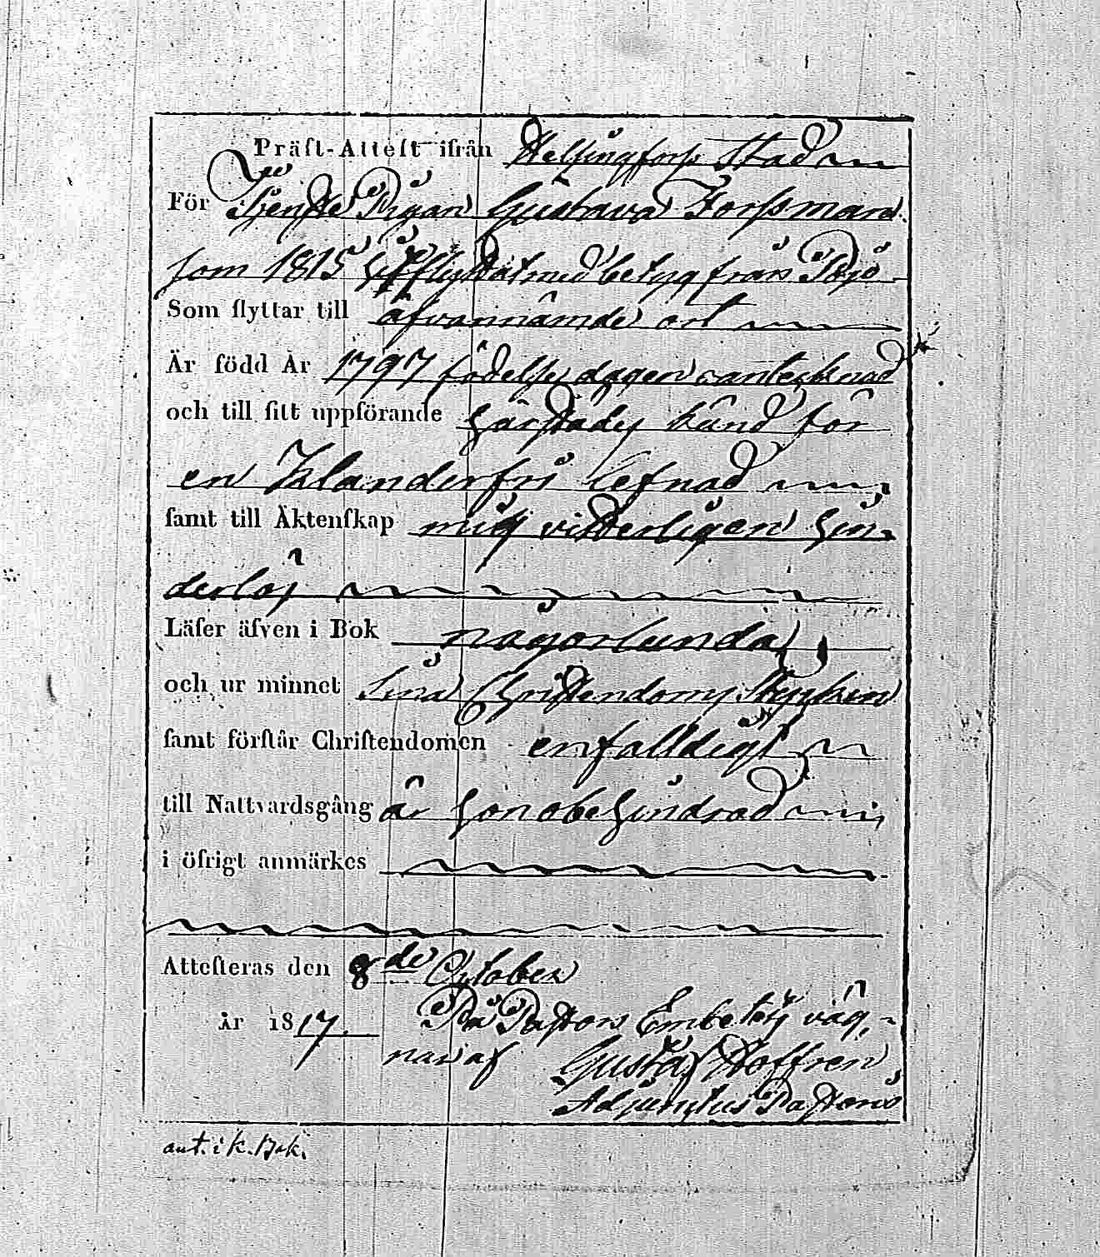 Präst-Attest ifrån Helsingfors Stad
För Tjenste Pigan Gustava Forssman
som 1815 hitflyttat med betyg från
Som flyttar till åfvannämde ort
Är född År 1797 födelse dagen oantecknad
och till sitt uppförande härstädes känd för
en klanderfri lefnad
samt till Äktenskap mig vitterligen hin-
derlös
Läser äfven i Bok någorlunda,
och ur minnet sina Christendoms Stycken
samt förstår Christendomen enfalldigt
till Nattvardsgång är hon obehindrad
i öfrigt anmärkes
Attesteras den 8de October
år 1817 På Pastors Embetets väg-
nar af Gustaf Hoffrén
Adjunctus Pastoris
ant. i K. Bok.